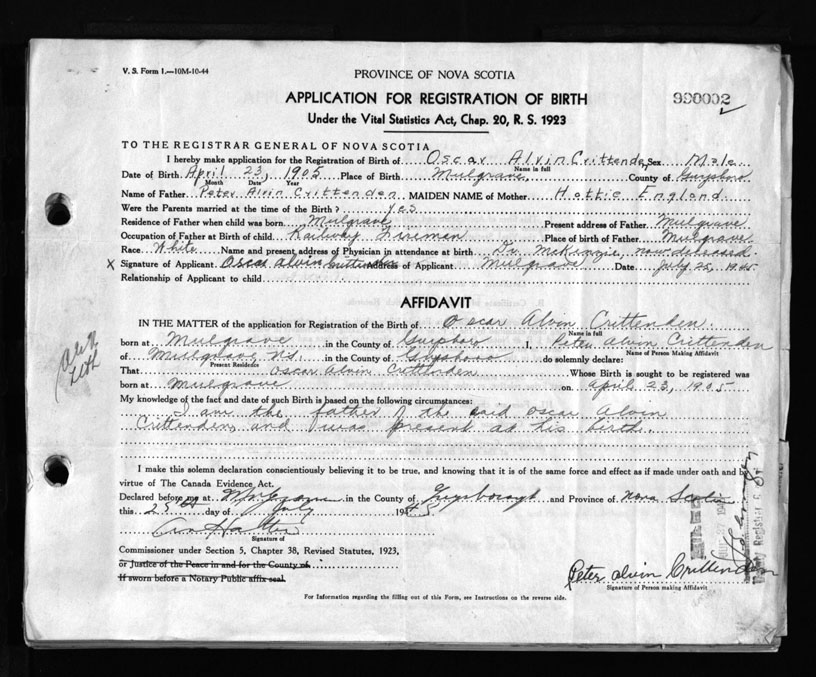 V. S. Form 1.—10M-10-44
PROVINCE OF NOVA SCOTIA
APPLICATION FOR REGISTRATION OF BIRTH
990002
Under the Vital Statistics Act, Chap. 20, R. S. 1923
TO THE REGISTRAR GENERAL OF NOVA SCOTIA
I hereby make application for the Registration of Birth of Oscar Alvin Crittenden Sex Male
Name in full
Date of Birth April 23, 1905 Place of Birth Mulgrave County of Guysboro
Month Date Year
Name of Father Peter Alvin Crittenden MAIDEN NAME of Mother Hattie England
Were the Parents married at the time of the Birth? yes
Residence of Father when child was born Mulgrave Present address of Father Mulgrave
Occupation of Father at Birth of child Railway Fireman Place of birth of Father Mulgrave
Race White Name and present address of Physician in attendance at birth Dr McKinzie, now deceased.
X Signature of Applicant Oscar Alvin Crittenden Address of Applicant Mulgrave Date July 25, 1945
Relationship of Applicant to child
AFFIDAVIT
IN THE MATTER of the application for Registration of the Birth of Oscar Alvin Crittenden
Name in full
born at Mulgrave in the County of Guysboro I, Peter Alvin Crittenden
Name of Person Making Affidavit
of Mulgrave N.S. in the County of Guysboro do solemnly declare:
Present Residence
That Oscar Alvin Crittenden Whose Birth is sought to be registered was
born at Mulgrave on April 23, 1905
My knowledge of the fact and date of such Birth is based on the following circumstances:
I am the father of the said Oscar Alvin
Crittenden, and I was present at his birth.
I make this solemn declaration conscientiously believing it to be true, and knowing that it is of the same force and effect as if made under oath and by
virtue of The Canada Evidence Act.
Declared before me at Mulgrave in the County of Guysborough and Province of Nova Scotia
this 25th day of July 1945
Signature of
Commissioner under Section 5, Chapter 38, Revised Statutes, 1923,
or Justice of the Peace in and for the County of
If sworn before a Notary Public affix seal.
Peter Alvin Crittenden
Signature of Person making Affidavit
For Information regarding the filling out of this Form, see Instructions on the reverse side.